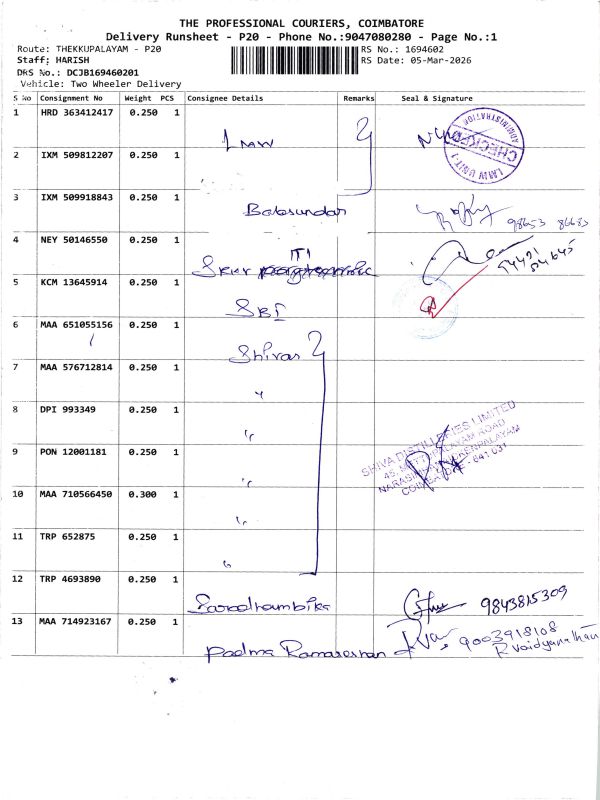 THE PROFESSIONAL COURIERS, COIMBATORE
Delivery Runsheet - P20 - Phone No.:9047080280 - Page No.:1
Route: THEKKUPALAYAM - P20 RS No.: 1694602
Staff: HARISH RS Date: 05-Mar-2026
DRS No.: DCJB169460201
Vehicle: Two Wheeler Delivery
S No Consignment No Weight PCS Consignee Details Remarks Seal & Signature
1 HRD 363412417 0.250 1
LMW
CHECKED
ADMINISTRATION
LMW UNIT-1
2 IXM 509812207 0.250 1
3 IXM 509918843 0.250 1 Balasundar 98653 86685
4 NEY 50146550 0.250 1 ITI 94421 04645
5 KCM 13645914 0.250 1 SBI
6 MAA 651055156 0.250 1 Shivas
7 MAA 576712814 0.250 1 "
8 DPI 993349 0.250 1 "
9 PON 12001181 0.250 1 "
SHIVA DISTILLERIES LIMITED
COIMBATORE - 641 031
10 MAA 710566450 0.300 1 "
11 TRP 652875 0.250 1 "
12 TRP 4693890 0.250 1 Saradhambika 9843815309
13 MAA 714923167 0.250 1 Padma Ramaseshan 9003918108
R Vaidyanathan